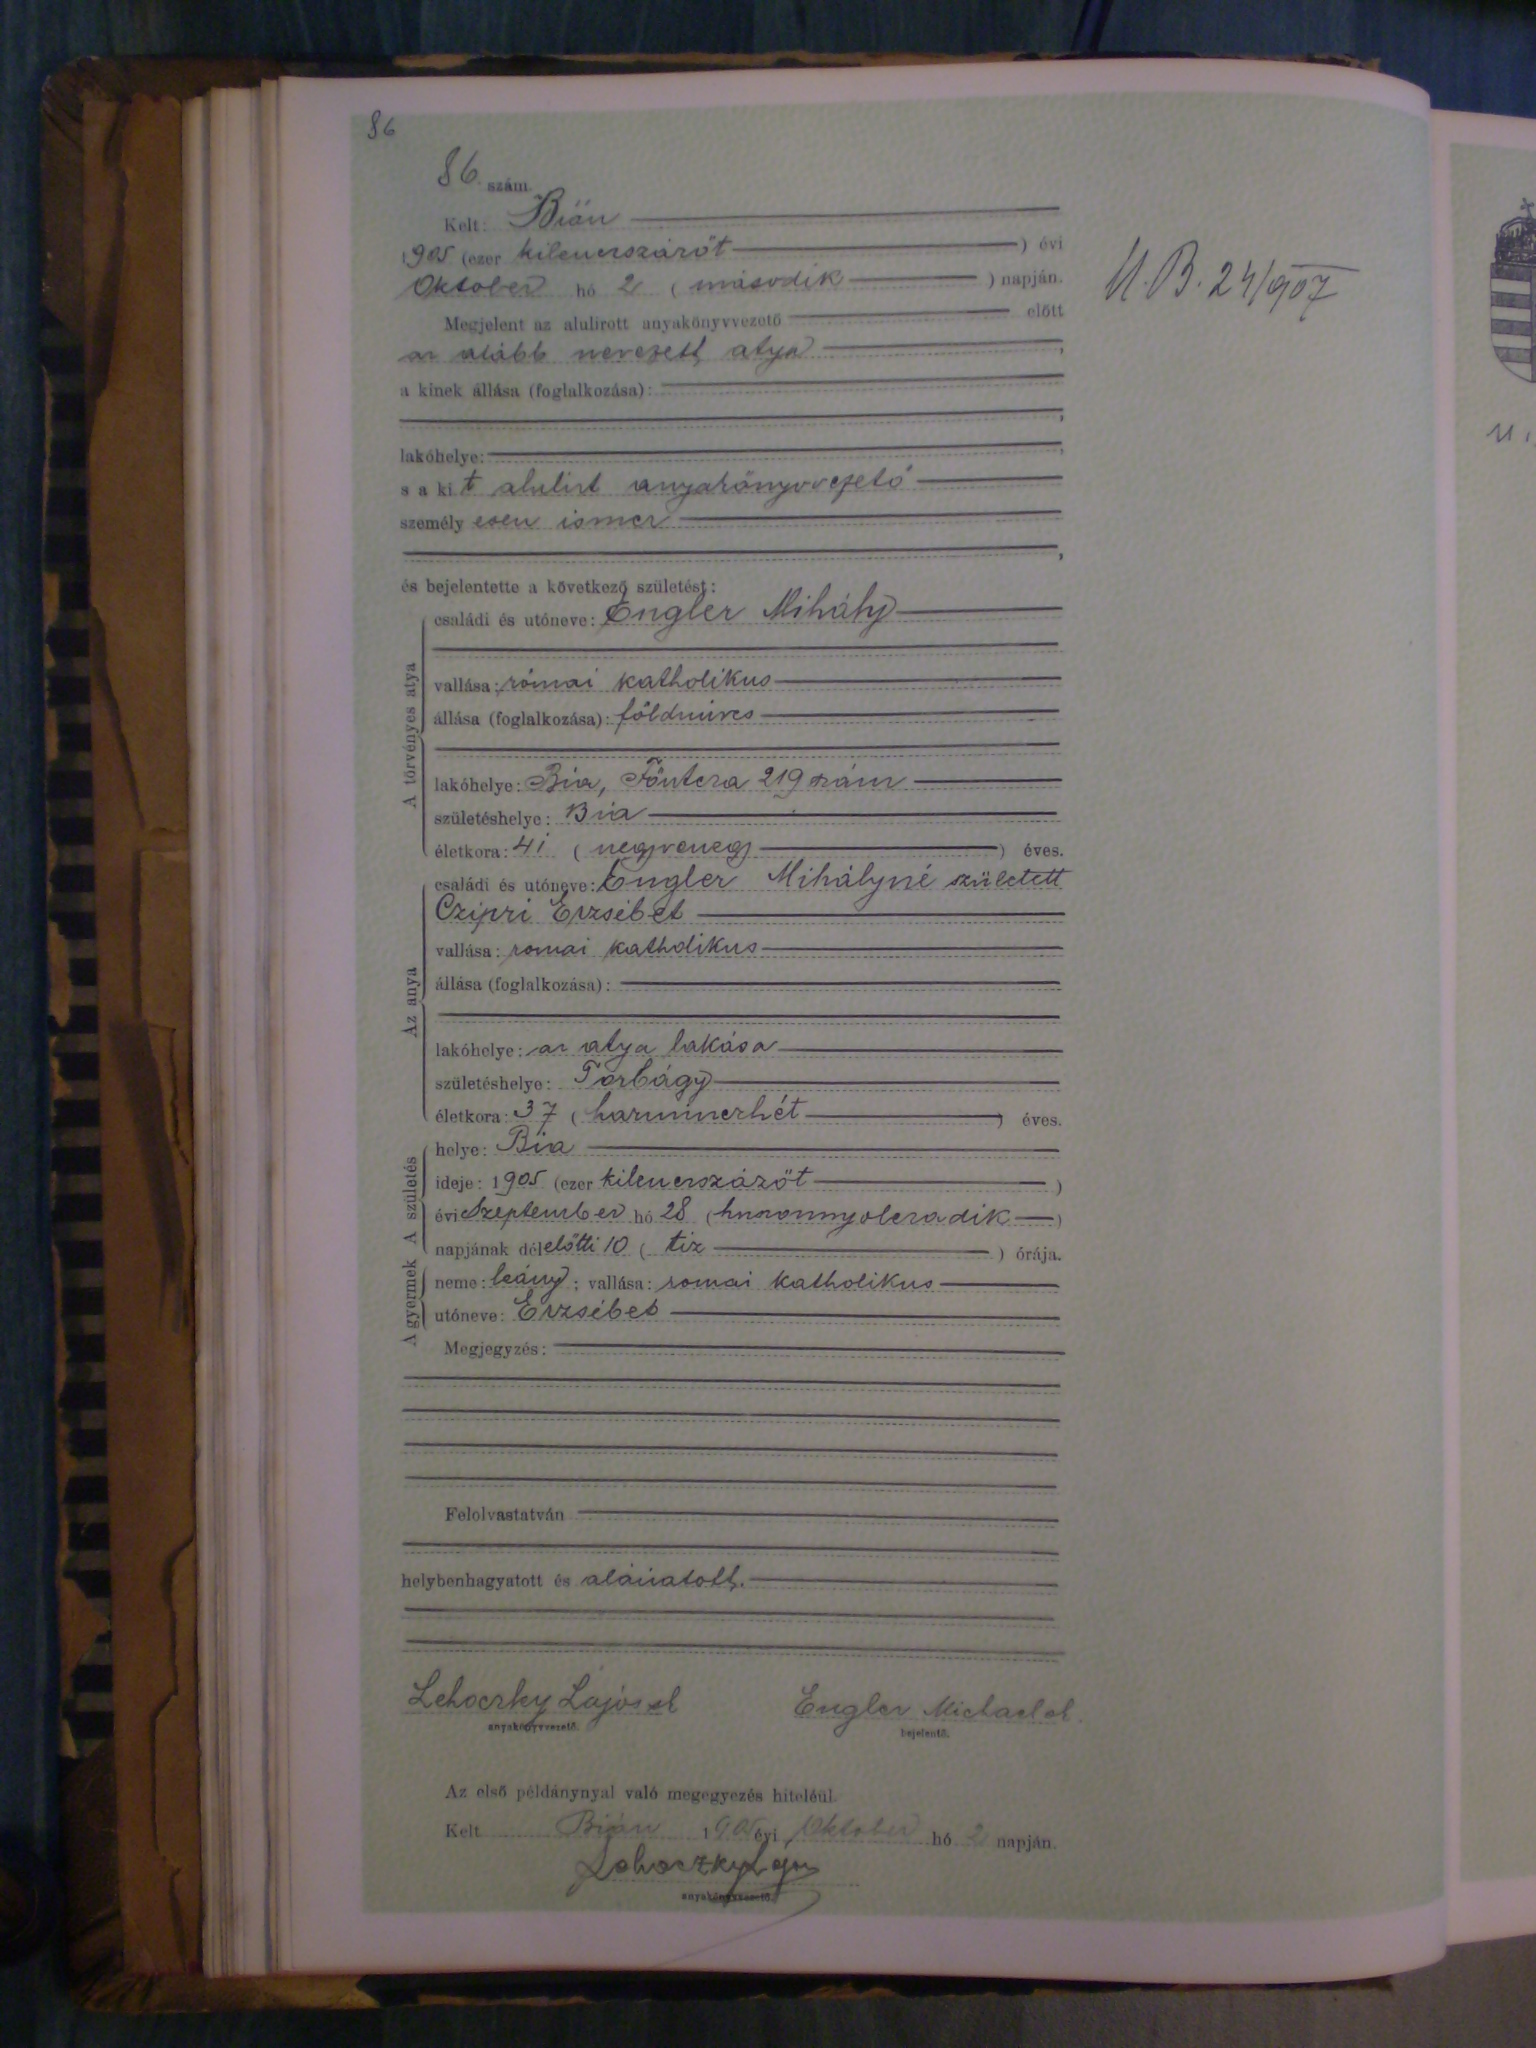 86
86 szám.
Kelt: Bián
1905 (ezer kilencszázöt ) évi
Október hó 2 ( második ) napján.
Megjelent az alulirott anyakönyvvezető előtt
az alább nevezett atya ,
a kinek állása (foglalkozása):
,
lakóhelye: ,
s a kit alulirt anyakönyvvezető
személyesen ismer
,
és bejelentette a következő születést:
A törvényes atya
családi és utóneve: Engler Mihály
vallása: római katholikus
állása (foglalkozása): földmüves
lakóhelye: Bia, Főutcza 219 szám
születéshelye: Bia
életkora: 41 ( negyvenegy ) éves.
Az anya
családi és utóneve: Engler Mihályné született
Czipri Erzsébet
vallása: romai katholikus
állása (foglalkozása):
lakóhelye: az atya lakása
születéshelye: Torbágy
életkora: 37 ( harminczhét ) éves.
A születés
helye: Bia
ideje: 1905 (ezer kilenczszázöt )
évi Szeptember hó 28 ( huszonnyolczadik )
napjának délelőtti 10 ( tiz ) órája.
A gyermek
neme: leány; vallása: romai katholikus
utóneve: Erzsébet
Megjegyzés:
Felolvastatván
helybenhagyatott és aláiratott.
Lehoczky Lajos sk Engler Michael sk.
anyakönyvvezető. bejelentő.
Az első példánynyal való megegyezés hiteléül.
Kelt Bián 1905 évi Október hó 2 napján.
Lehoczky Lajos
anyakönyvvezető.
U.B. 24/907